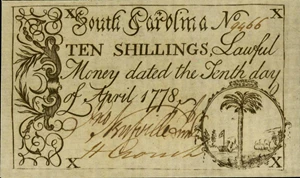 X X
South Carolina No 9466
TEN SHILLINGS, Lawful
Money dated the Tenth day
of April 1778.
H Crouch
X X